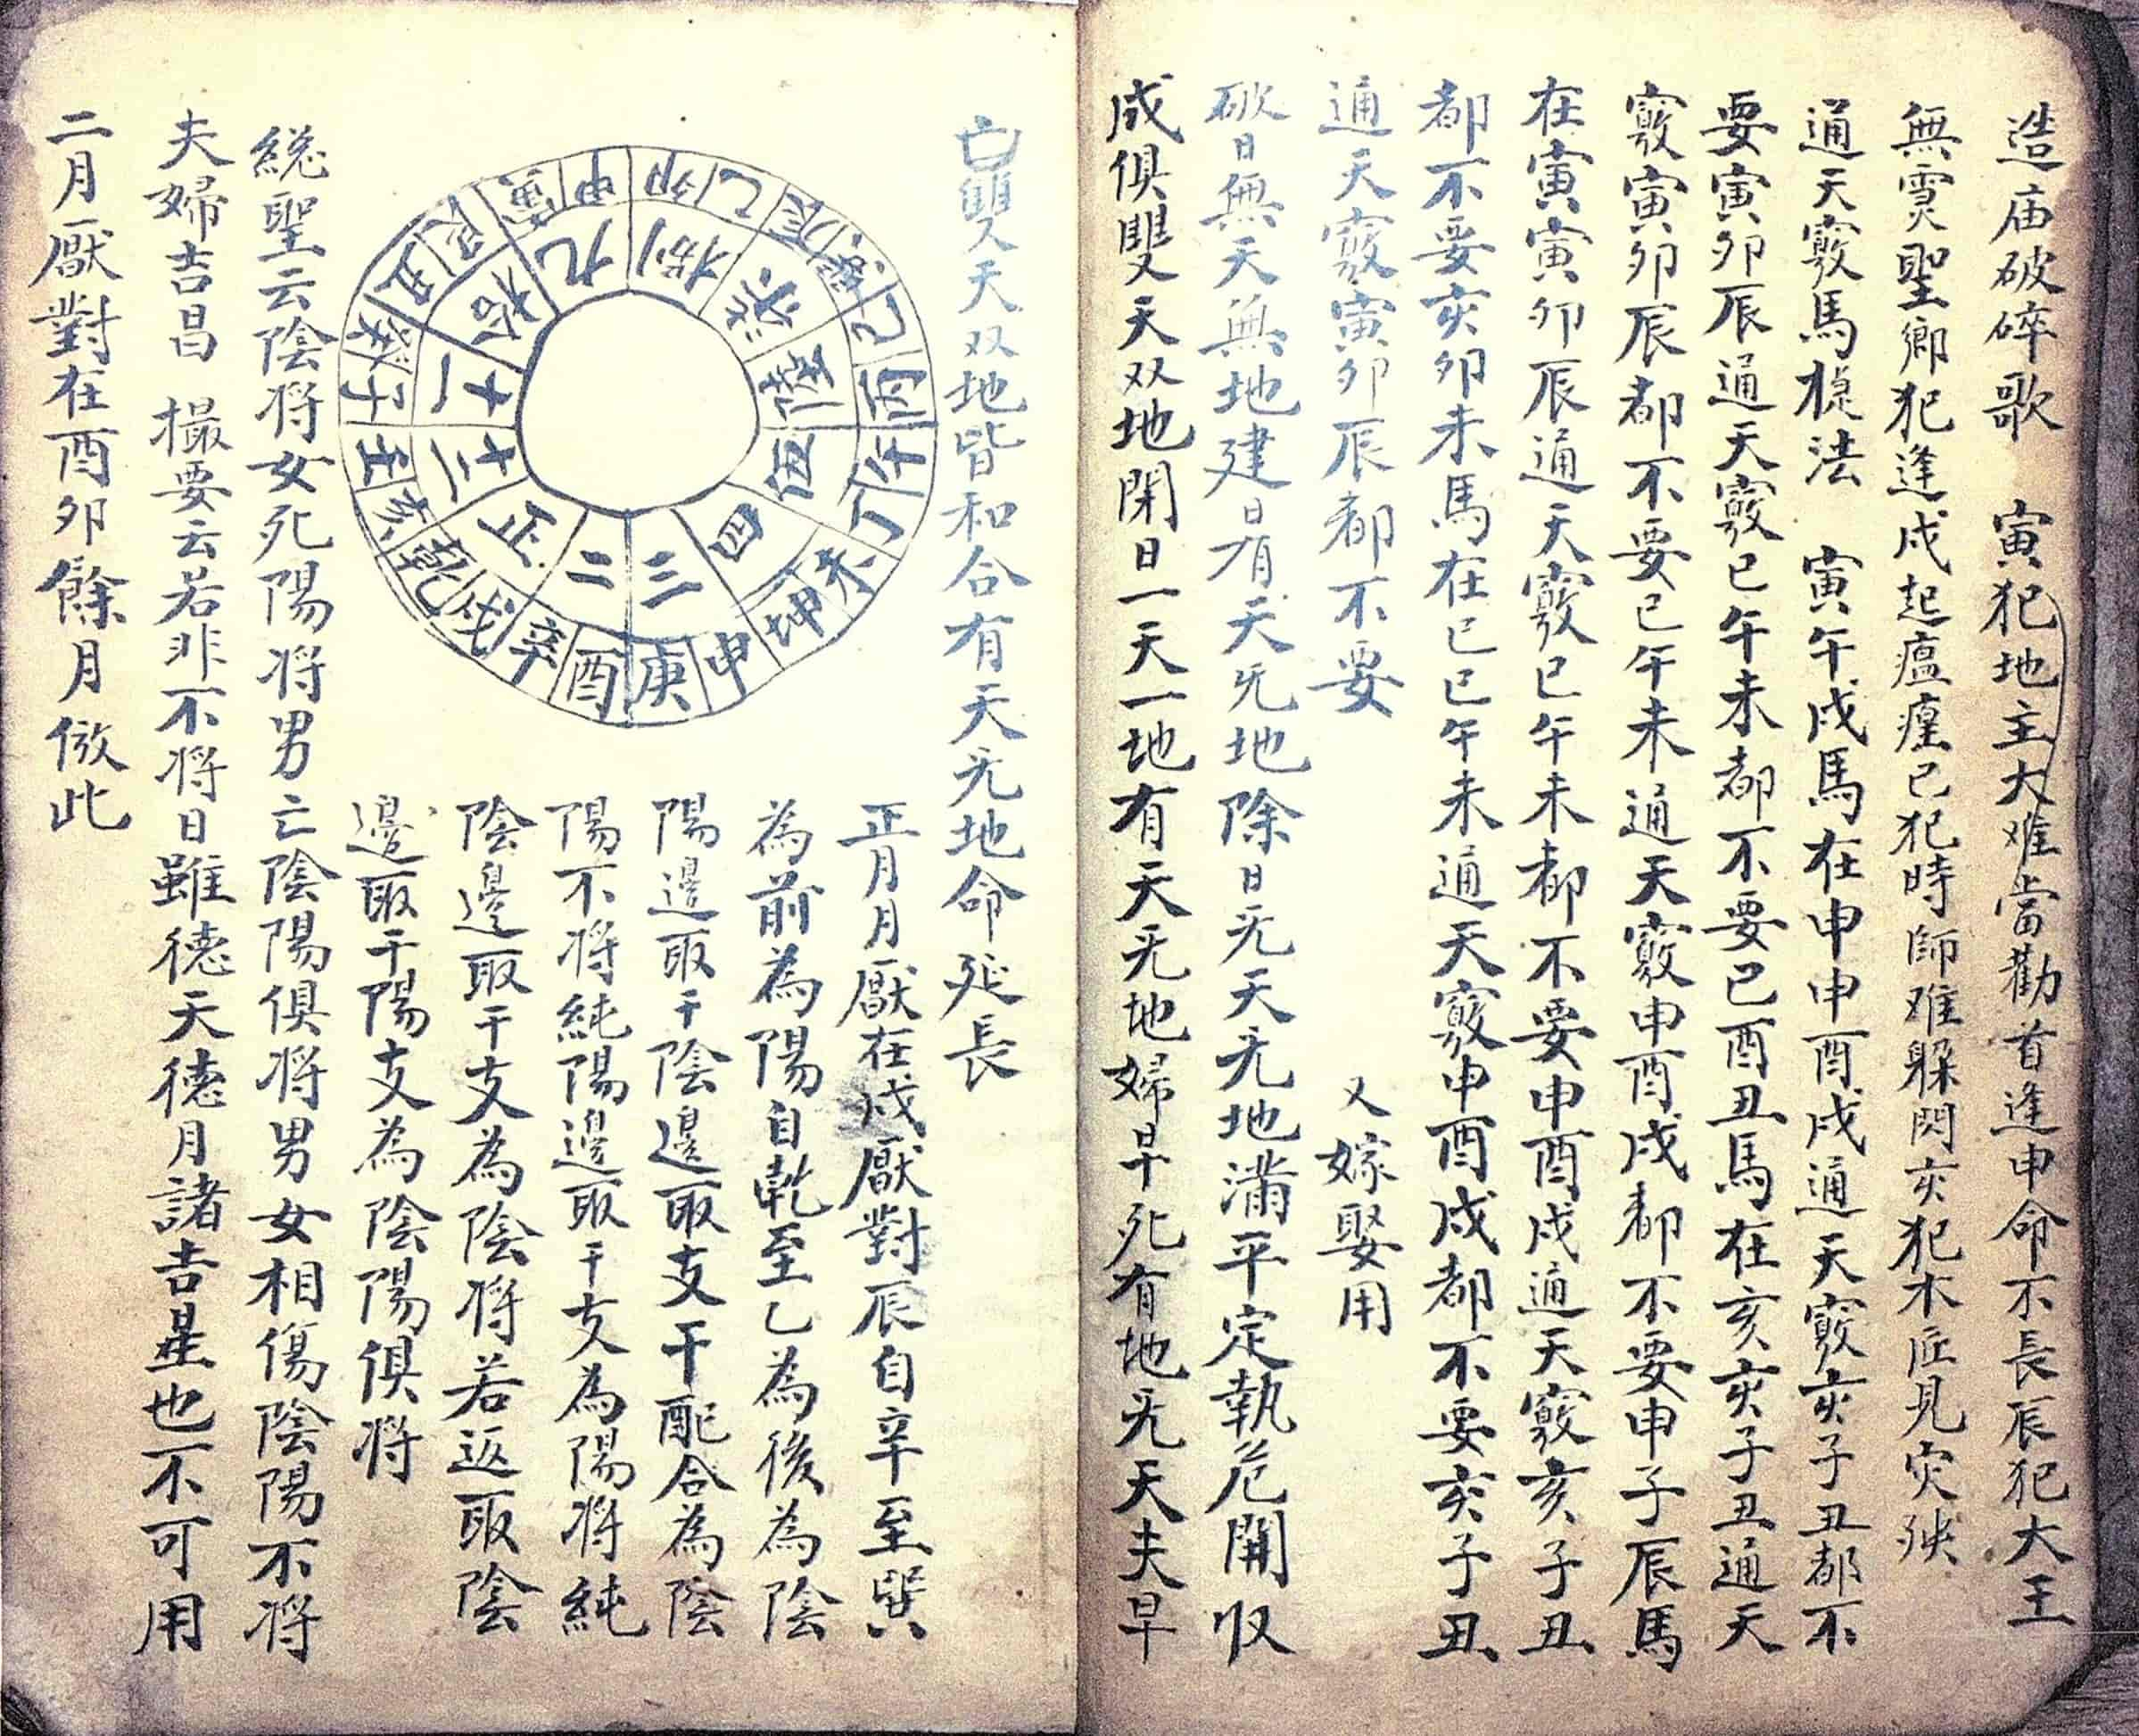 造庙破碎歌　寅犯地主大难當勸首逢申命不長辰犯大王
無灵聖鄉犯逢戌起瘟瘽已犯時師难躲閃亥犯木匠見灾殃
通天竅馬椃法　寅午戌馬在申申酉戌通天竅亥子丑都不
要寅卯辰通天竅巳午未都不要巳酉丑馬在亥亥子丑通天
竅寅卯辰都不要巳午未通天竅申酉戌都不要申子辰馬
在寅寅卯辰通天竅巳午未都不要申酉戌通天竅亥子丑
都不要亥卯未馬在巳巳午未通天竅申酉戌都不要亥子丑
通天竅寅卯辰都不要　又嫁娶用
破日無天無地建日有天旡地除日旡天旡地滿平定執危開収
成俱雙天双地閉日一天一地有天旡地婦早死有地旡天夫早
亡雙天双地皆和合有天旡地命延長
正月月厭在戌厭對辰自辛至巽
為前為陽自乾至乙為後為陰
陽邊取干陰邊取支干配合為陰
陽不将純陽邊取干支為陽将純
陰邊取干支為陰将若返取陰
邊取干陽支為陰陽俱将
総聖云陰将女死陽将男亡陰陽俱将男女相傷陰陽不将
夫婦吉昌　撮要云若非不将日雖德天德月諸吉星也不可用
二月厭對在酉卯餘月倣此
甲
卯
乙
辰
巽
巳
丙
午
丁
未
坤
申
庚
酉
辛
戌
乾
亥
壬
子
癸
丑
艮
寅
正
二
三
四
伍
陸
柒
捌
九
拾
十一
十二